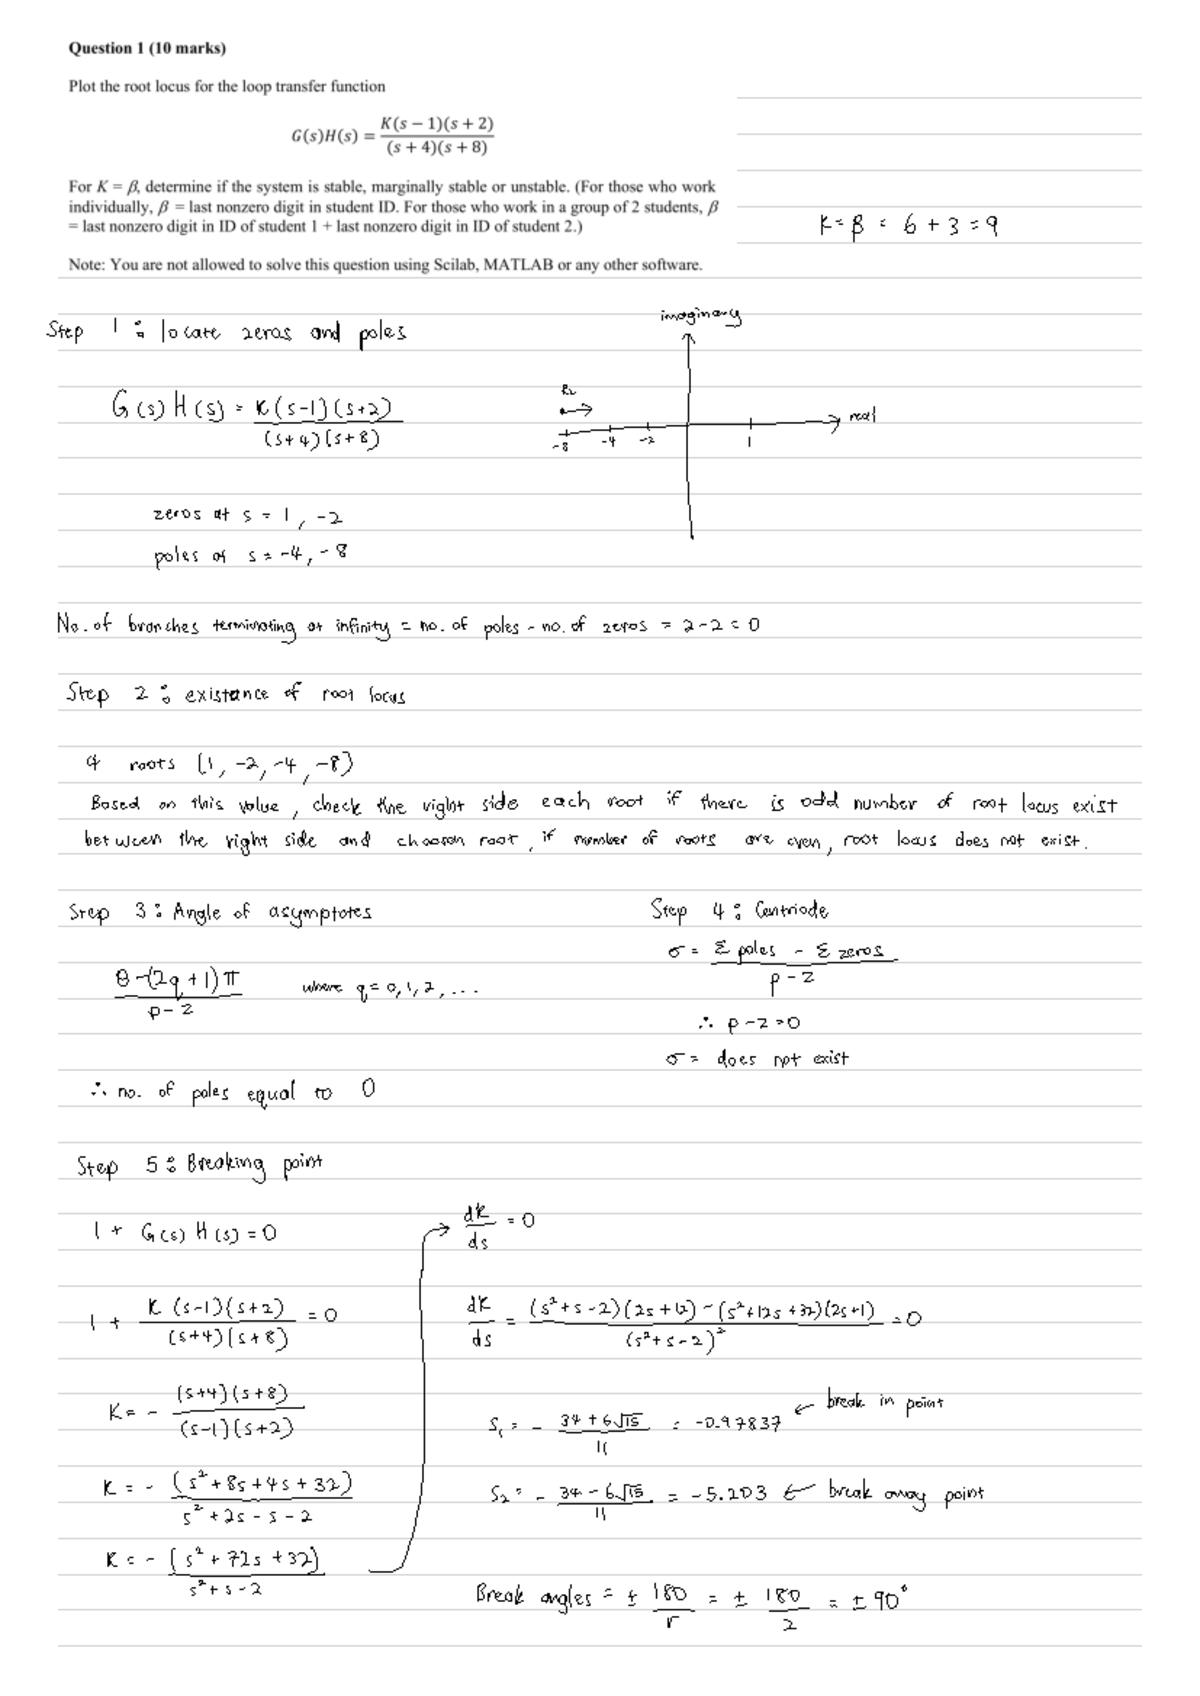 Question 1 (10 marks)
Plot the root locus for the loop transfer function
G(s)H(s) = K(s − 1)(s + 2) / (s + 4)(s + 8)
For K = β, determine if the system is stable, marginally stable or unstable. (For those who work
individually, β = last nonzero digit in student ID. For those who work in a group of 2 students, β
= last nonzero digit in ID of student 1 + last nonzero digit in ID of student 2.)
K = β = 6 + 3 = 9
Note: You are not allowed to solve this question using Scilab, MATLAB or any other software.
Step 1 : locate zeros and poles
imaginary
G(s) H(s) = K(s-1)(s+2) / (s+4)(s+8)
real
-8 -4 -2 1
zeros at s = 1, -2
poles at s = -4, -8
No. of branches terminating at infinity = no. of poles - no. of zeros = 2-2 = 0
Step 2 : existance of root locus
4 roots (1, -2, -4, -8)
Based on this value, check the right side each root if there is odd number of root locus exist
between the right side and choosen root, if number of roots are even, root locus does not exist.
Step 3 : Angle of asymptotes
θ -(2q+1)π / p-z where q = 0, 1, 2, ...
∴ no. of poles equal to 0
Step 4 : Centriode
σ = Σ poles - Σ zeros / p-z
∴ p-z=0
σ = does not exist
Step 5 : Breaking point
1 + G(s) H(s) = 0
1 + K(s-1)(s+2) / (s+4)(s+8) = 0
K = - (s+4)(s+8) / (s-1)(s+2)
K = - (s²+8s+4s+32) / s²+2s-s-2
K = - (s²+72s+32) / s²+s-2
dK/ds = 0
dK/ds = (s²+s-2)(2s+12) - (s²+12s+32)(2s+1) / (s²+s-2)² = 0
S₁ = - 34+6√15 / 11 = -0.97837 ← break in point
S₂ = - 34-6√15 / 11 = -5.203 ← break away point
Break angles = ± 180/r = ± 180/2 = ± 90°